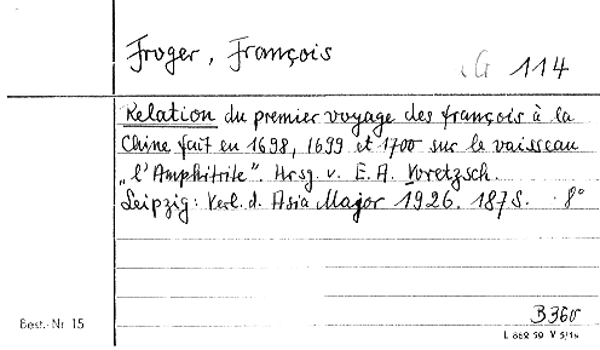 Froger, François
G 114
Relation du premier voyage des françois à la
Chine fait en 1698, 1699 et 1700 sur le vaisseau
„l'Amphitrite". Hrsg. v. E. A. Voretzsch.
Leipzig: Verl. d. Asia Major 1926. 187 S. 8°
B 360
Best.-Nr. 15